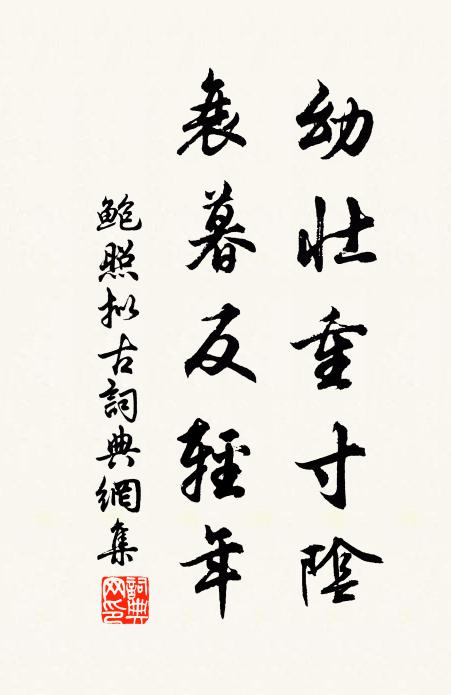 幼壯重寸陰
衰暮反輕年
鮑照拟古詞典網集
詞典網印